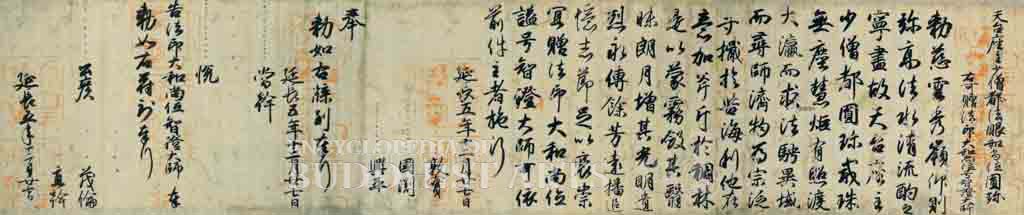 天台座主少僧都法眼和尚位圓珍
勅慈雲秀嶺仰則
弥高法水清流酌之
寧盡故天台座主
少僧都圓珍戒珠
無塵慧炬有照渡
大瀛而求法騁異域
而尋師濟物為宗泛
於苦海利他在
意加斧斤於稠林
是以蒙霧斂其翳
昧朗月增其光明遺
烈永傳餘芳遠播追
憶志節足以褒崇
冝贈法印大和尚位
謚号智證大師可依
前件主者施行
延長五年十二月廿七日
奉
勅如右牒到奉行
延長五年十二月廿七日
告法印大和尚位智證大師奉
勅如右符到奉行
延長五年十二月廿七日
ENCYCLOPEDIA OF
BUDDHIST ARTS